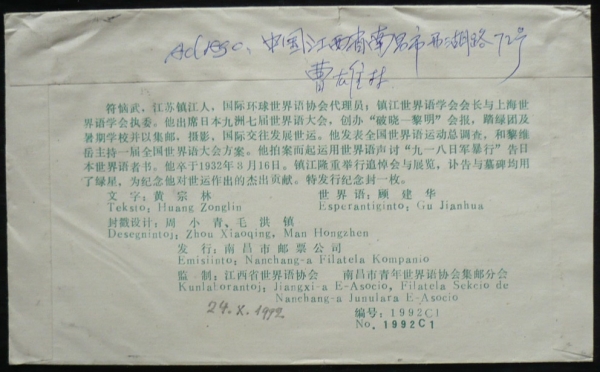 Adreso: 中国江西省南昌市西湖路72号
曹
符恼武,江苏镇江人,国际环球世界语协会代理员;镇江世界语学会会长与上海世
界语学会执委。他出席日本九洲七届世界语大会,创办“破晓一黎明”会报,踏绿团及
暑期学校并以集邮,摄影,国际交往发展世运。他发表全国世界语运动总调查,和黎维
岳主持一届全国世界语大会方案。他拍案而起运用世界语声讨“九一八日军暴行”告日
本世界语者书。他卒于1932年3月16日。镇江隆重举行追悼会与展览,讣告与墓碑均用
了绿星,为纪念他对世运作出的杰出贡献。特发行纪念封一枚。
文 字:黄 宗 林 世 界 语:顾 建 华
Teksto: Huang Zonglin Esperantiginto: Gu Jianhua
封戳设计:周 小 青、毛 洪 镇
Desegninto; Zhou Xiaoqing, Man Hongzhen
发 行:南 昌 市 邮 票 公 司
Emisiinto: Nanchang-a Filatela Kompanio
监 制:江西省世界语协会 南昌市青年世界语协会集邮分会
Kunlaborantoj: Jiangxi-a E-Asocio, Filatela Sekcio de
Nanchang-a Junulara E-Asocio
24.X.1992
编号:1992C1
No.1992C1